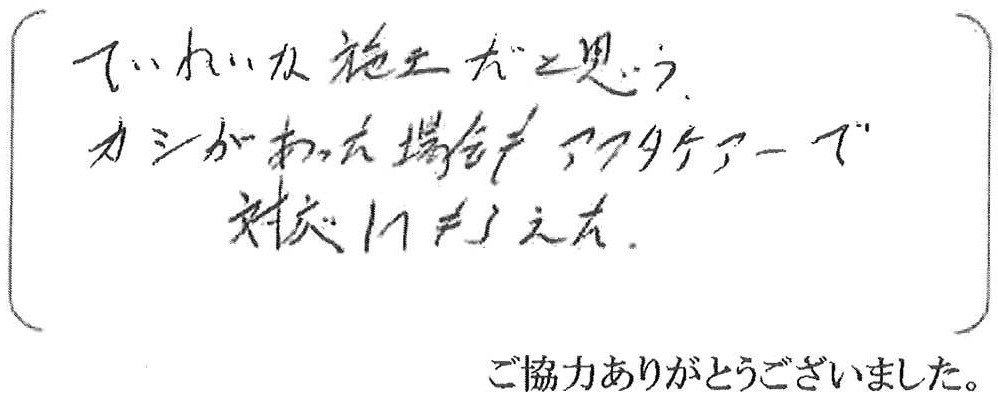 ていねいな施工だと思う.
カシがあった場合もアフタケアーで
対応してもらえた.
ご協力ありがとうございました。